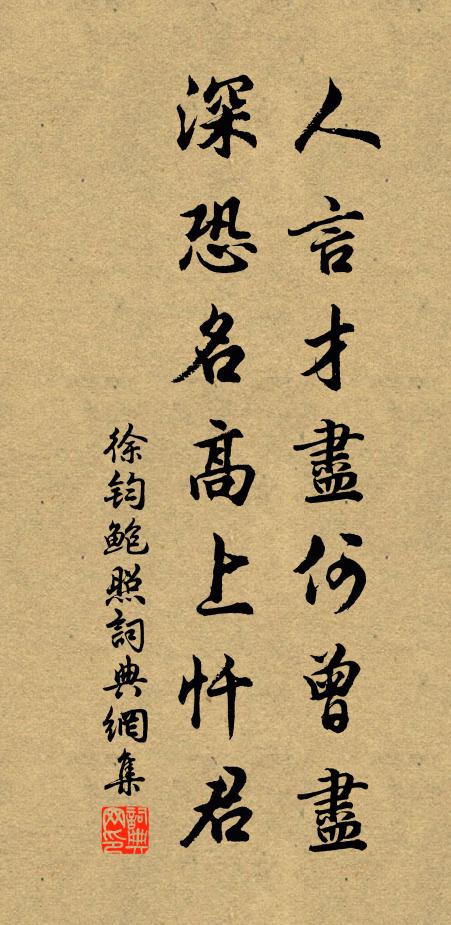 人言才盡何曾盡
深恐名高上忤君
徐鈞鮑照詞典網集
詞典網印